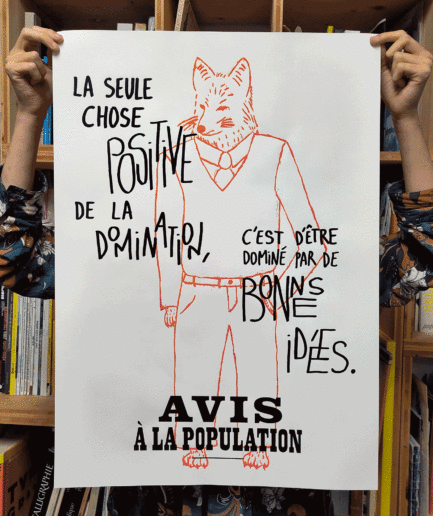 LA SEULE
CHOSE
POSITIVE
DE LA
DOMINATION,
C'EST D'ÊTRE
DOMINÉ PAR DE
BONNES
IDÉES.
AVIS
À LA POPULATION
CALLIGRAPHIE